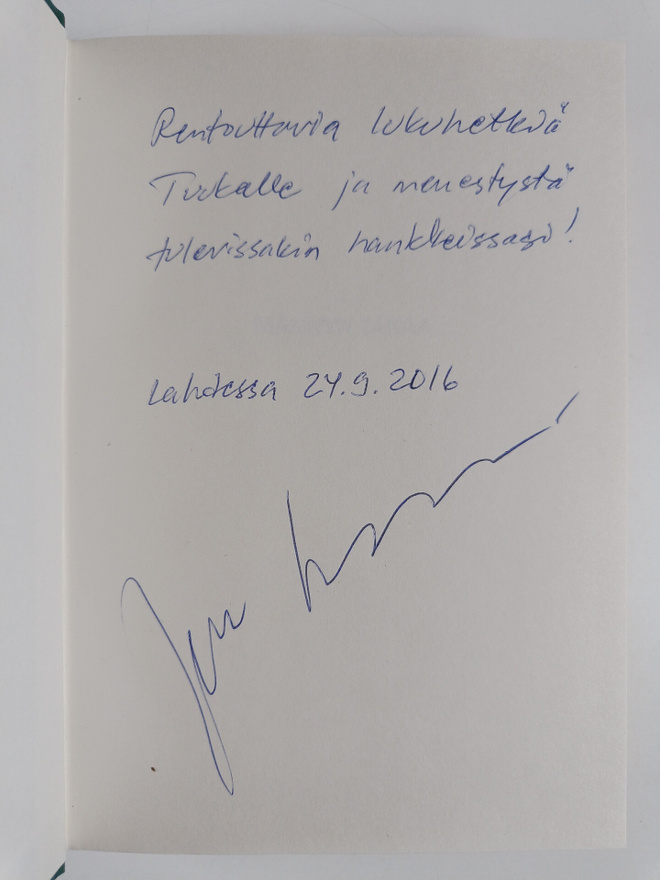 Rentouttavia lukuhetkiä
Tuukalle ja menestystä
tulevissakin hankkeissasi!
Lahdessa 24.9.2016